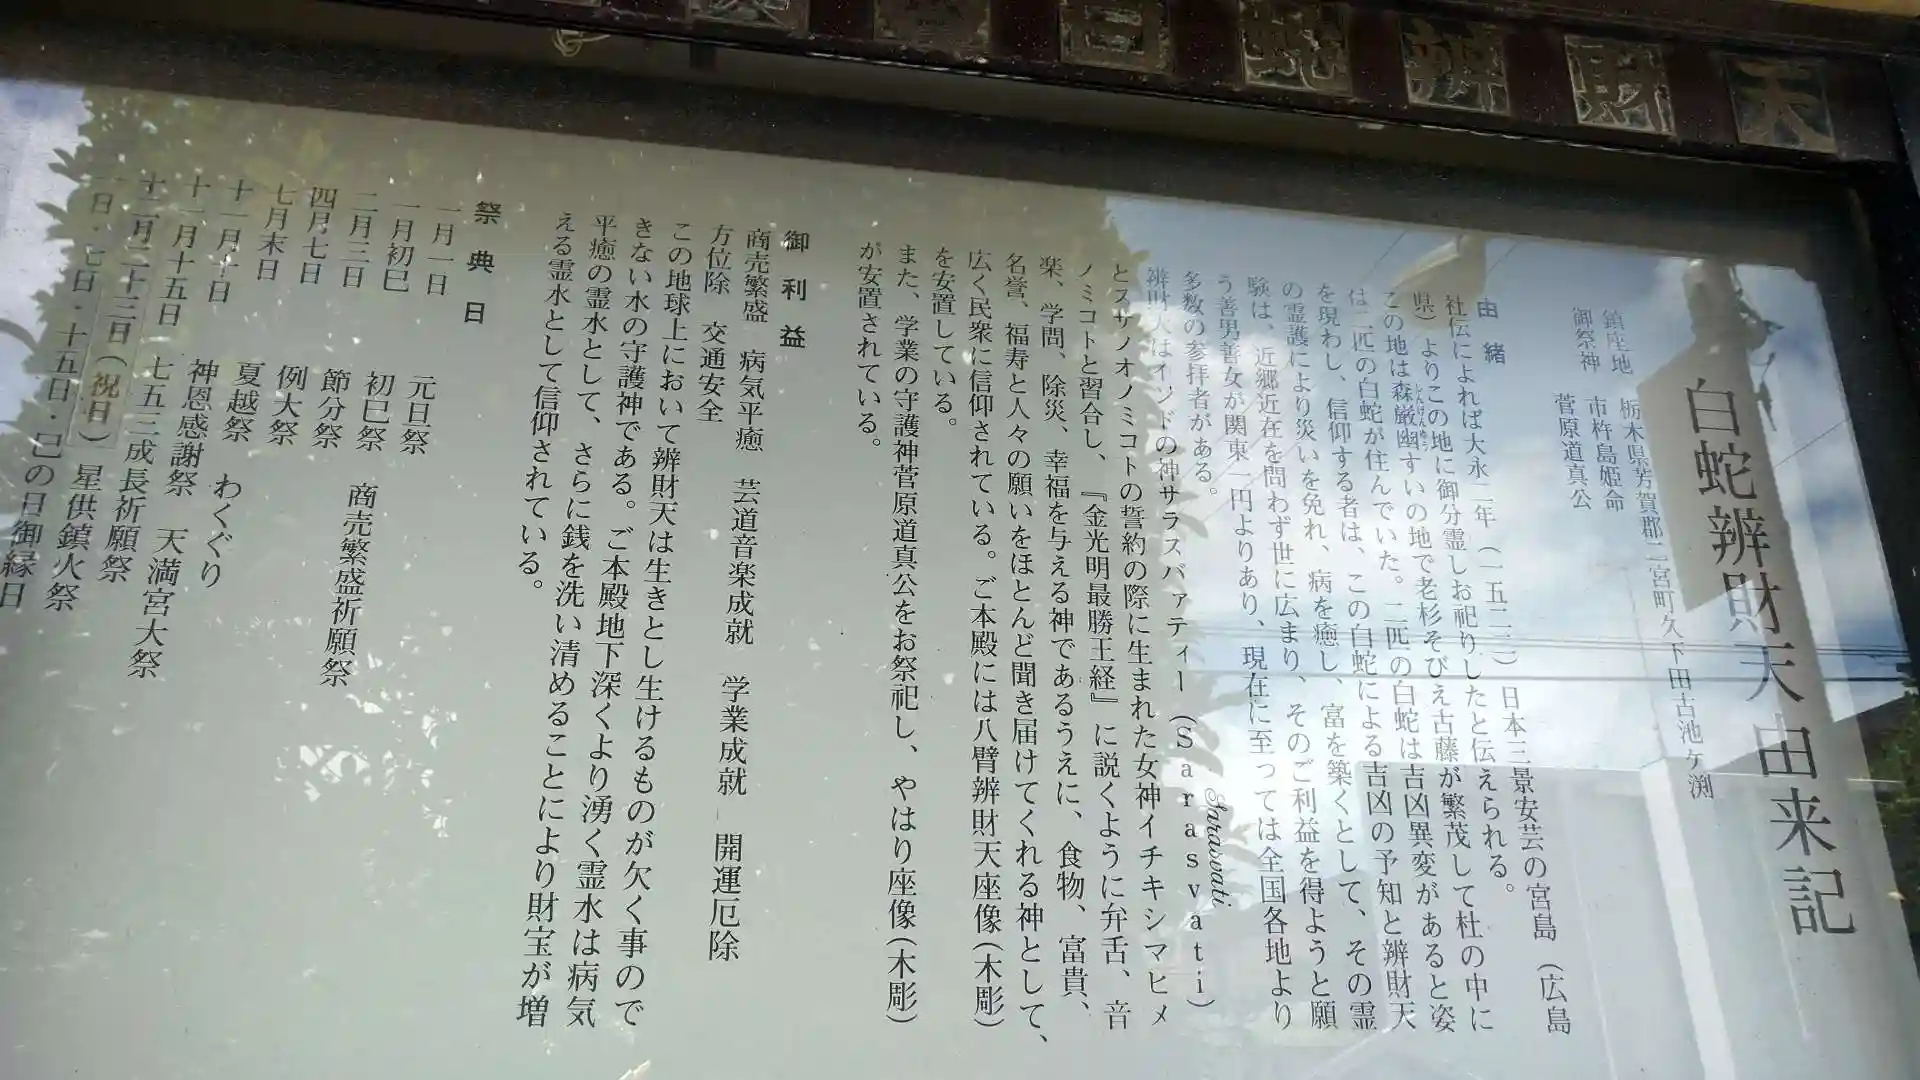 白蛇辨財天
白蛇辨財天由来記
鎮座地　栃木県芳賀郡二宮町久下田古池ヶ渕
御祭神　市杵島姫命
菅原道真公
由緒
社伝によれば大永二年（一五二二）日本三景安芸の宮島（広島
県）よりこの地に御分霊しお祀りしたと伝えられる。
この地は森厳幽すいの地で老杉そびえ古藤が繁茂して杜の中に
は二匹の白蛇が住んでいた。二匹の白蛇は吉凶異変があると姿
を現わし、信仰する者は、この白蛇による吉凶の予知と辨財天
の霊護により災いを免れ、病を癒し、富を築くとして、その霊
験は、近郷近在を問わず世に広まり、そのご利益を得ようと願
う善男善女が関東一円よりあり、現在に至っては全国各地より
多数の参拝者がある。
辨財天はインドの神サラスバァティー（Sarasvati）
Sarasvati
とスサノオノミコトの誓約の際に生まれた女神イチキシマヒメ
ノミコトと習合し、『金光明最勝王経』に説くように弁舌、音
楽、学問、除災、幸福を与える神であるうえに、食物、富貴、
名誉、福寿と人々の願いをほとんど聞き届けてくれる神として、
広く民衆に信仰されている。ご本殿には八臂辨財天座像（木彫）
を安置している。
また、学業の守護神菅原道真公をお祭祀し、やはり座像（木彫）
が安置されている。
御利益
商売繁盛　病気平癒　芸道音楽成就　学業成就　開運厄除
方位除　交通安全
この地球上において辨財天は生きとし生けるものが欠く事ので
きない水の守護神である。ご本殿地下深くより湧く霊水は病気
平癒の霊水として、さらに銭を洗い清めることにより財宝が増
える霊水として信仰されている。
祭典日
一月一日　元旦祭
一月初巳　初巳祭
二月三日　節分祭　商売繁盛祈願祭
四月七日　例大祭
七月末日　夏越祭　わくぐり
十一月十日　神恩感謝祭
十一月十五日　七五三成長祈願祭　天満宮大祭
十二月二十三日（祝日）　星供鎮火祭
一日・七日・十五日・己の日御縁日